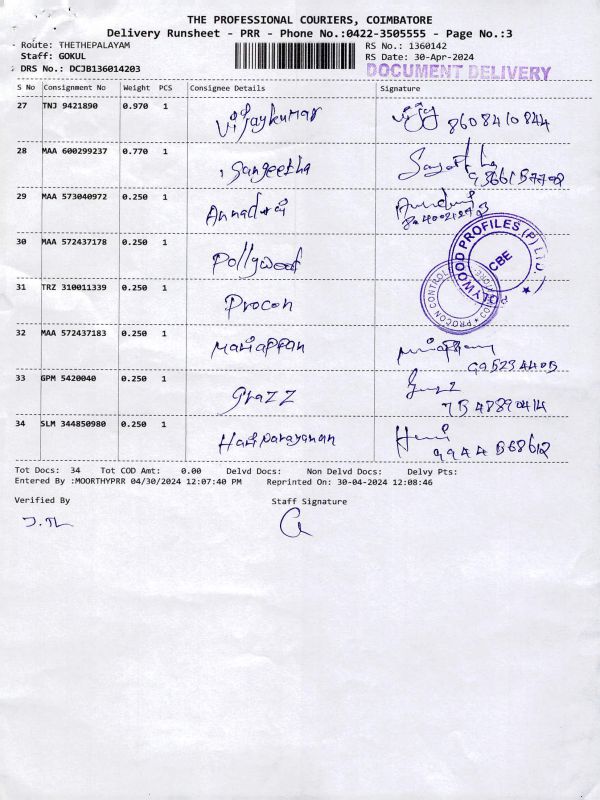 THE PROFESSIONAL COURIERS, COIMBATORE
Delivery Runsheet - PRR - Phone No.:0422-3505555 - Page No.:3
Route: THETHEPALAYAM RS No.: 1360142
Staff: GOKUL RS Date: 30-Apr-2024
DRS No.: DCJB136014203 DOCUMENT DELIVERY
S No Consignment No Weight PCS Consignee Details Signature
27 TNJ 9421890 0.970 1 Vijaykumar 8608410844
28 MAA 600299237 0.770 1 Sangeetha
29 MAA 573040972 0.250 1
30 MAA 572437178 0.250 1 Pollywood
POLYWOOD PROFILES (P) LTD. CBE
31 TRZ 310011339 0.250 1 Procon
PROCON CONTROL
32 MAA 572437183 0.250 1 Mariappan
33 GPM 5420040 0.250 1 Grazz
34 SLM 344850980 0.250 1 Harinarayanan
Tot Docs: 34 Tot COD Amt: 0.00 Delvd Docs: Non Delvd Docs: Delvy Pts:
Entered By :MOORTHYPRR 04/30/2024 12:07:40 PM Reprinted On: 30-04-2024 12:08:46
Verified By Staff Signature